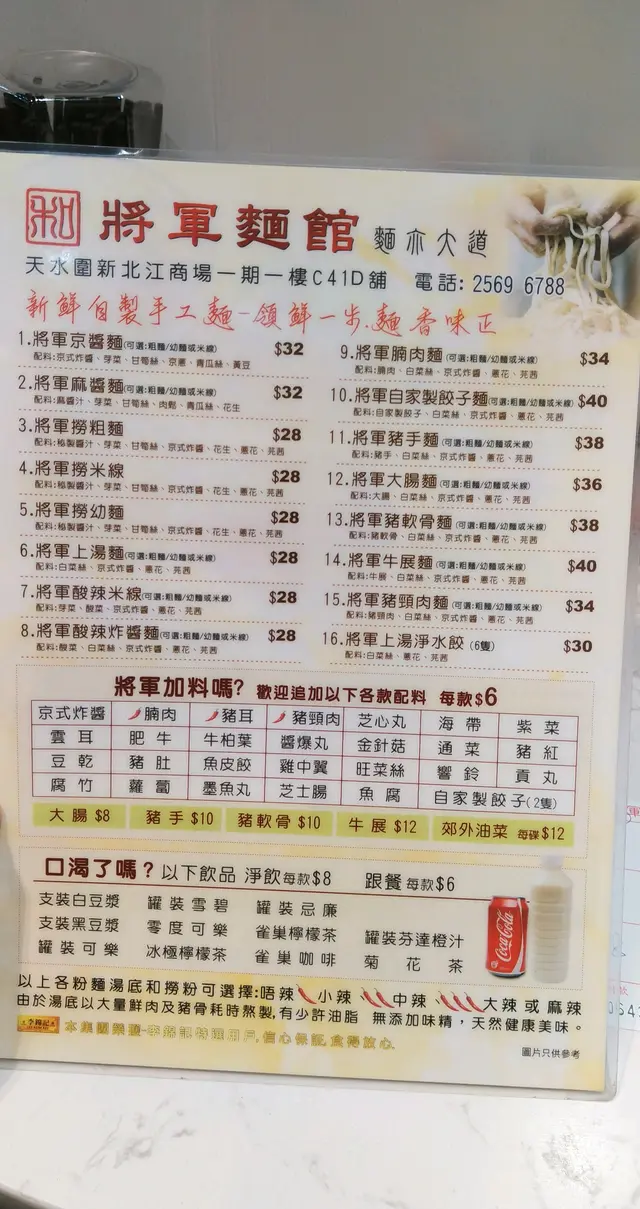 和 將軍麵館 麵亦大道
天水圍新北江商場一期一樓C41D舖 電話: 2569 6788
新鮮自製手工麵-領鮮一步.麵香味正
1.將軍京醬麵(可選:粗麵/幼麵或米線) $32
配料:京式炸醬、芽菜、甘筍絲、京蔥、青瓜絲、黃豆
2.將軍麻醬麵(可選:粗麵/幼麵或米線) $32
配料:麻醬汁、芽菜、甘筍絲、肉鬆、青瓜絲、花生
3.將軍撈粗麵 $28
配料:秘製醬汁、芽菜、甘筍絲、京式炸醬、花生、蔥花、芫茜
4.將軍撈米線 $28
配料:秘製醬汁、芽菜、甘筍絲、京式炸醬、花生、蔥花、芫茜
5.將軍撈幼麵 $28
配料:秘製醬汁、芽菜、甘筍絲、京式炸醬、花生、蔥花、芫茜
6.將軍上湯麵(可選:粗麵/幼麵或米線) $28
配料:白菜絲、京式炸醬、蔥花、芫茜
7.將軍酸辣米線(可選:粗麵/幼麵或米線) $28
配料:芽菜、酸菜、京式炸醬、蔥花、芫茜
8.將軍酸辣炸醬麵(可選:粗麵/幼麵或米線) $28
配料:酸菜、白菜絲、京式炸醬、蔥花、芫茜
9.將軍腩肉麵(可選:粗麵/幼麵或米線) $34
配料:腩肉、白菜絲、京式炸醬、蔥花、芫茜
10.將軍自家製餃子麵(可選:粗麵/幼麵或米線) $40
配料:自家製餃子、白菜絲、京式炸醬、蔥花、芫茜
11.將軍豬手麵(可選:粗麵/幼麵或米線) $38
配料:豬手、白菜絲、京式炸醬、蔥花、芫茜
12.將軍大腸麵(可選:粗麵/幼麵或米線) $36
配料:大腸、白菜絲、京式炸醬、蔥花、芫茜
13.將軍豬軟骨麵(可選:粗麵/幼麵或米線) $38
配料:豬軟骨、白菜絲、京式炸醬、蔥花、芫茜
14.將軍牛展麵(可選:粗麵/幼麵或米線) $40
配料:牛展、白菜絲、京式炸醬、蔥花、芫茜
15.將軍豬頸肉麵(可選:粗麵/幼麵或米線) $34
配料:豬頸肉、白菜絲、京式炸醬、蔥花、芫茜
16.將軍上湯淨水餃(6隻) $30
配料:白菜絲、蔥花、芫茜
將軍加料嗎? 歡迎追加以下各款配料 每款$6
京式炸醬 腩肉 豬耳 豬頸肉 芝心丸 海帶 紫菜
雲耳 肥牛 牛柏葉 醬爆丸 金針菇 通菜 豬紅
豆乾 豬肚 魚皮餃 雞中翼 旺菜絲 響鈴 貢丸
腐竹 蘿蔔 墨魚丸 芝士腸 魚腐 自家製餃子(2隻)
大腸 $8 豬手 $10 豬軟骨 $10 牛展 $12 郊外油菜 每碟$12
口渴了嗎? 以下飲品 淨飲每款$8 跟餐每款$6
支裝白豆漿 罐裝雪碧 罐裝忌廉
支裝黑豆漿 零度可樂 雀巢檸檬茶 罐裝芬達橙汁
罐裝可樂 冰極檸檬茶 雀巢咖啡 菊花茶
Coca-Cola
以上各粉麵湯底和撈粉可選擇:唔辣 小辣 中辣 大辣 或 麻辣
由於湯底以大量鮮肉及豬骨耗時熬製,有少許油脂 無添加味精，天然健康美味。
李錦記 本集團榮膺-李錦記特選用戶,信心保証,食得放心.
圖片只供參考